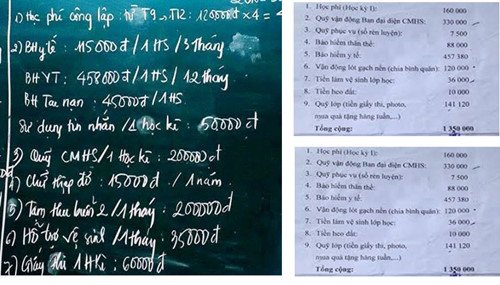 1) Học phí công lập: từ T9 → T12: 120000đ × 4 =
2) BH y tế: 115000đ / 1HS / 3 tháng
BHYT: 458000đ / 1HS / 12 tháng
BH Tai nạn: 45000đ / 1HS.
Sử dụng tin nhắn / 1 học kì: 50000đ
3) Quỹ CMHS / 1 Học kì: 200000đ
4) Chữ thập đỏ: 15000đ / 1 năm
5) Tạm thu buổi 2 / 1 tháng: 200000đ
6) Hỗ trợ vệ sinh / 1 tháng: 35000đ
7) Giấy thi 1HKì: 60000đ
1. Học phí (Học kỳ I): 160 000
2. Quỹ vận động Ban đại diện CMHS: 330 000
3. Quỹ phục vụ (sổ rèn luyện): 7 500
4. Bảo hiểm thân thể: 88 000
5. Bảo hiểm y tế: 457 380
6. Vận động lót gạch nền (chia bình quân): 120 000
7. Tiền làm vệ sinh lớp học: 36 000
8. Tiền heo đất: 10 000
9. Quỹ lớp (tiền giấy thi, photo, 141 120
mua quà tặng hàng tuần,...)
Tổng cộng: 1 350 000
1. Học phí (Học kỳ I): 160 000
2. Quỹ vận động Ban đại diện CMHS: 330 000
3. Quỹ phục vụ (sổ rèn luyện): 7 500
4. Bảo hiểm thân thể: 88 000
5. Bảo hiểm y tế: 457 380
6. Vận động lót gạch nền (chia bình quân): 120 000
7. Tiền làm vệ sinh lớp học: 36 000
8. Tiền heo đất: 10 000
9. Quỹ lớp (tiền giấy thi, photo, 141 120
mua quà tặng hàng tuần,...)
Tổng cộng: 1 350 000